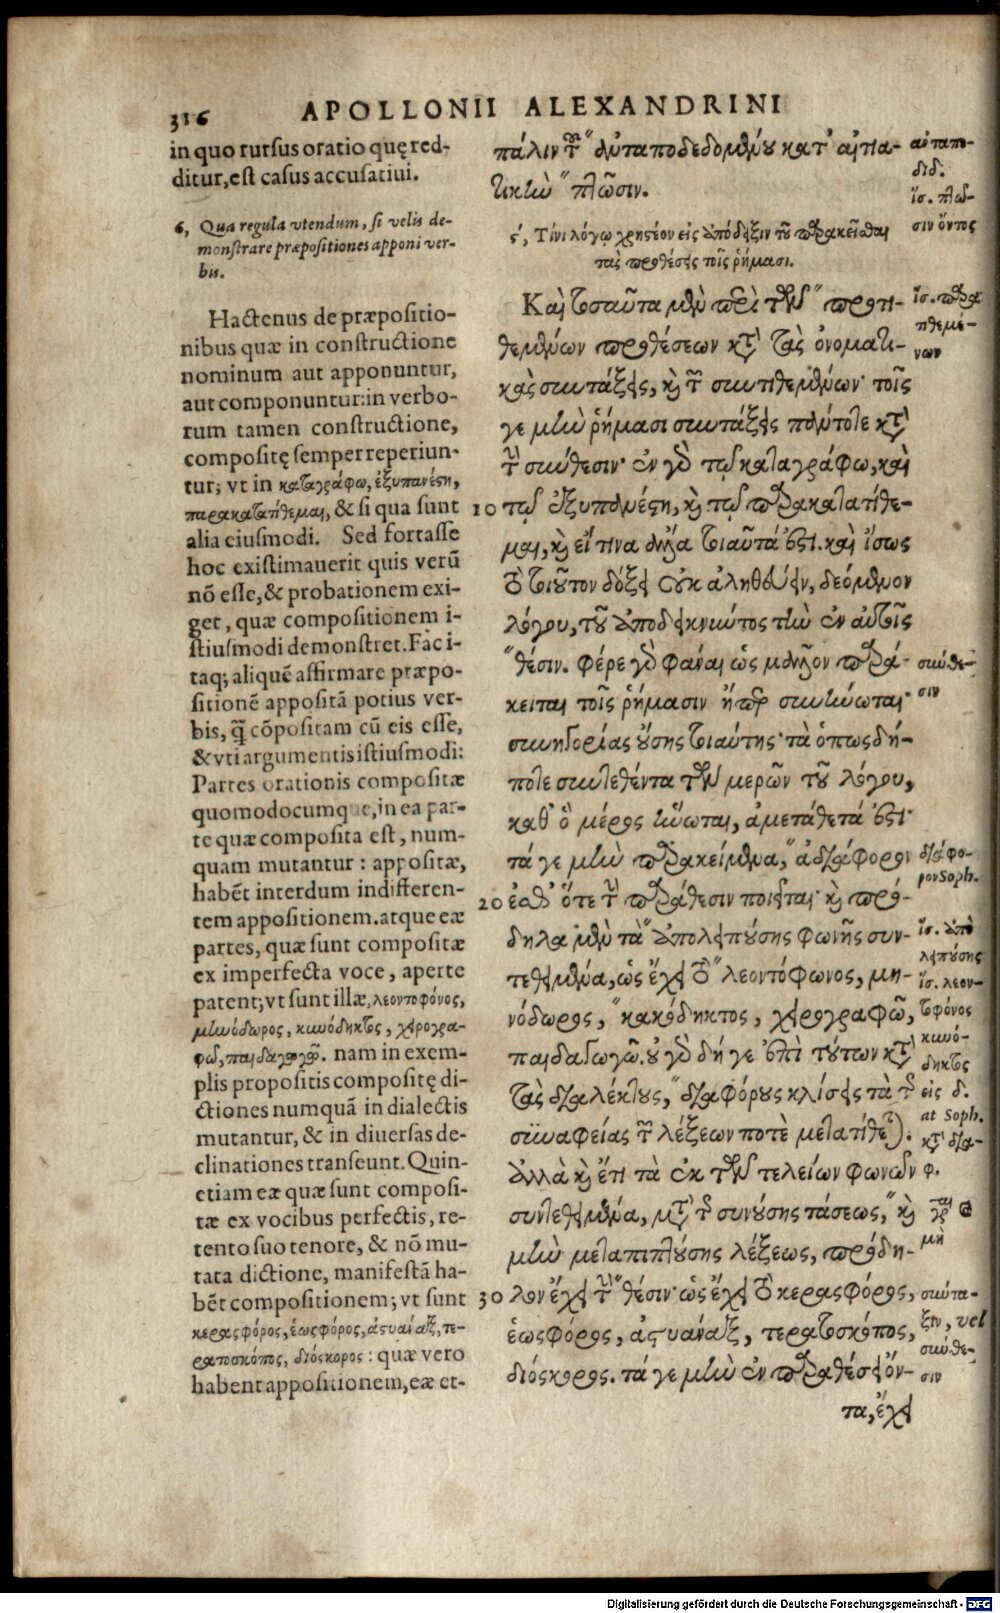 316 APOLLONII ALEXANDRINI
in quo rursus oratio quę red-
ditur, est casus accusatiui.
6, Qua regula vtendum, si velis de-
monstrare præpositiones apponi ver-
bis.
Hactenus de præpositio-
nibus quæ in constructione
nominum aut apponuntur,
aut componuntur: in verbo-
rum tamen constructione,
compositę semper reperiun-
tur; vt in καταγράφω, ἐξυπανέςη,
παρακατατίθεμαι, & si qua sunt
alia eiusmodi. Sed fortasse
hoc existimauerit quis verũ
nõ esse, & probationem exi-
get, quæ compositionem i-
stiusmodi demonstret. Fac i-
taq; aliquẽ affirmare præpo-
sitionẽ appositã potius ver-
bis, q̃ cõpositam cũ eis esse,
& vti argumentis istiusmodi:
Partes orationis compositæ
quomodocumque, in ea par-
te quæ composita est, num-
quam mutantur: appositæ,
habẽt interdum indifferen-
tem appositionem. atque eæ
partes, quæ sunt compositæ
ex imperfecta voce, aperte
patent; vt sunt illæ, λεοντοφόνος,
μηνόδωρος, κυνόδηκτος, χειρογρα-
φῶ, παιδαγωγῶ. nam in exem-
plis propositis compositę di-
ctiones numquã in dialectis
mutantur, & in diuersas de-
clinationes transeunt. Quin-
etiam eæ quæ sunt composi-
tæ ex vocibus perfectis, re-
tento suo tenore, & nõ mu-
tata dictione, manifestã ha-
bẽt compositionem; vt sunt
κερασφόρος, ἑωσφόρος, ἀςυάναξ, τε-
ρατοσκόπος, διόσκορος: quæ vero
habent appositionem, eæ et-
πάλιν τῆς " ἀνταποδεδομένου κατ' αἰτια-
τικὴν " πτῶσιν.
ς, Τίνι λόγῳ χρηστέον εἰς ἀπόδειξιν τοῦ παρακεῖσθαι
τὰς προθέσεις τοῖς ῥήμασι.
Καὶ τοσαῦτα μὲν περὶ τῶν " προτι-
θεμένων προθέσεων κατὰ τὰς ὀνοματι-
κὰς συντάξεις, καὶ τῶν συντιθεμένων· τοῖς
γε μὴν ῥήμασι συντάξεις πάντοτε κατὰ
τὴν σύνθεσιν· ἐν γὰρ τῷ καταγράφω, καὶ
10 τῷ ἐξυπανέςη, καὶ τῷ παρακατατίθε-
μαι, καὶ εἴ τινα ἄλλα τοιαῦτά ἐστι. καὶ ἴσως
τὸ τοιοῦτον δόξει οὐκ ἀληθεύειν, δεόμενον
λόγου, τοῦ ἀποδεικνύντος τὴν ἐν αὐτοῖς
" θέσιν. φέρε γὰρ φάναι ὡς μᾶλλον παρά-
κειται τοῖς ῥήμασιν ἤπερ συνήνωται·
συνηγορίας οὔσης τοιαύτης· τὰ ὁπωσδή-
ποτε συντεθέντα τῶν μερῶν τοῦ λόγου,
καθ' ὃ μέρος ἥνωται, ἀμετάθετά ἐστι·
τά γε μὴν παρακείμενα, " ἀδιάφοροι
20 ἐσθ' ὅτε τὴν παράθεσιν ποιεῖται· καὶ πρό-
δηλα μὲν τὰ " ἀπολειπούσης φωνῆς συν-
τεθειμένα, ὡς ἔχει τὸ " λεοντόφωνος, μη-
νόδωρος, " κακόδηκτος, χειρογραφῶ,
παιδαγωγῶ. οὐ γὰρ δή γε ἐπὶ τούτων κατὰ
τὰς διαλέκτους, " διαφόρους κλίσεις τὰ τῆς
συναφείας τῶν λέξεων ποτὲ μετατίθεται.
ἀλλὰ καὶ ἔτι τὰ ἐκ τῶν τελείων φωνῶν
συντεθειμένα, μετὰ τῆς συνούσης τάσεως, " καὶ
μὴν μεταπιπτούσης λέξεως, πρόδη-
30 λον ἔχει τὴν " θέσιν· ὡς ἔχει τὸ κερασφόρος,
ἑωσφόρος, ἀςυάναξ, τερατοσκόπος,
διόσκορος. τά γε μὴν ἐν παραθέσει ὄν-
τα, ἔχει
αὐταπο-
διδ.
ἴσ. πλώ-
σιν ὄντος
ἴσ. παρα
τιθεμέ-
νων
σύνθε-
σιν
διάφο-
ρον Soph.
ἴσ. ἀπὸ
λειπούσης
ἴσ. λεον-
τοφόνος
κυνό-
δηκτος
εἰς δ.
at Soph.
κατὰ δια-
φ.
μὴ
σύντα-
ξιν, vel
σύνθε-
σιν
Digitalisierung gefördert durch die Deutsche Forschungsgemeinschaft - DFG